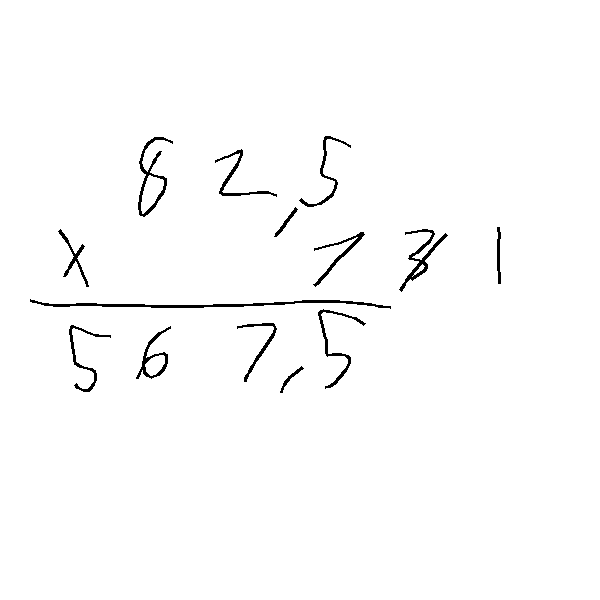 82,5
x 7 3 1
567,5